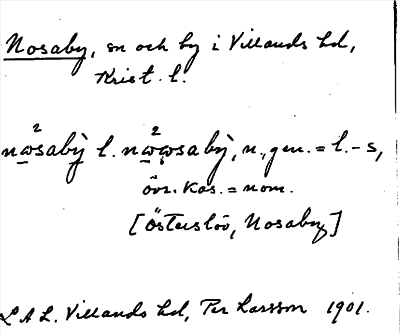 Nosaby, sn och by i Villands hd,
Krist. l.
nωsabỳ l. nωωsabỳ, n., gen. = l. - s,
övr. kas. = nom.
[Österslöv, Nosaby]
L A L. Villands hd, Per Larsson 1901.